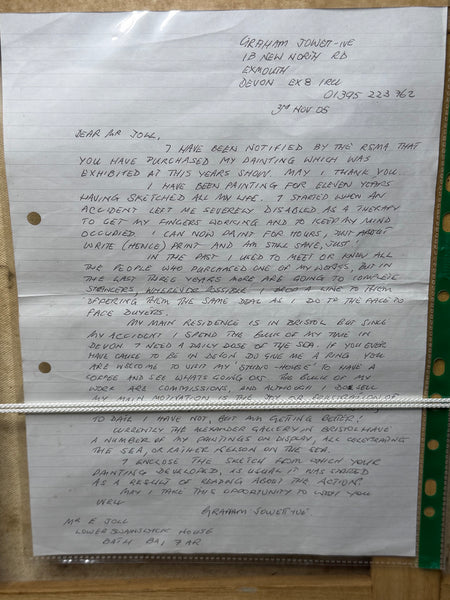 GRAHAM JOWETT-IVE
1B NEW NORTH RD
EXMOUTH
DEVON EX8 1RU
01395 223 762
3RD NOV 05
DEAR MR JOLL,
I HAVE BEEN NOTIFIED BY THE RSMA THAT
YOU HAVE PURCHASED MY PAINTING WHICH WAS
EXHIBITED AT THIS YEARS SHOW. MAY I THANK YOU.
I HAVE BEEN PAINTING FOR ELEVEN YEARS
HAVING SKETCHED ALL MY LIFE. I STARTED WHEN AN
ACCIDENT LEFT ME SEVERELY DISABLED AS A THERAPY
TO GET MY FINGERS WORKING AND TO KEEP MY MIND
OCCUPIED. I CAN NOW PAINT FOR HOURS, JUST ABOUT
WRITE (HENCE) PRINT AND AM STILL SANE, JUST!
IN THE PAST I USED TO MEET OR KNOW ALL
THE PEOPLE WHO PURCHASED ONE OF MY WORKS, BUT IN
THE LAST THREE YEARS MORE ARE GOING TO COMPLETE
STRANGERS. WHEREVER POSSIBLE I DROP A LINE TO THEM
OFFERING THEM THE SAME DEAL AS I DO THE FACE TO
FACE BUYERS.
MY MAIN RESIDENCE IS IN BRISTOL BUT SINCE
MY ACCIDENT I SPEND THE BULK OF MY TIME IN
DEVON. I NEED A DAILY DOSE OF THE SEA. IF YOU EVER
HAVE CAUSE TO BE IN DEVON DO GIVE ME A RING. YOU
ARE WELCOME TO VISIT MY 'STUDIO-HOUSE' TO HAVE A
COFFEE AND SEE WHATS GOING ON. THE BULK OF MY
ARE COMMISSIONS, AND ALTHOUGH I DO SELL
MY MAIN MOTIVATION IS THE JOY OR FRUSTRATION OF
TO DATE I HAVE NOT, BUT AM GETTING BETTER!
CURRENTLY THE ALEXANDER GALLERY IN BRISTOL HAVE
A NUMBER OF MY PAINTINGS ON DISPLAY, ALL CELEBRATING
THE SEA, OR RATHER NELSON ON THE SEA.
I ENCLOSE THE SKETCH FROM WHICH YOUR
PAINTING DEVELOPED, AS USUAL IT WAS STARTED
AS A RESULT OF READING ABOUT THE ACTION.
MAY I TAKE THIS OPPORTUNITY TO WISH YOU
WELL
GRAHAM JOWETT-IVE
MR E JOLL
LOWER SWAINSWICK HOUSE
BATH BA1 7AR